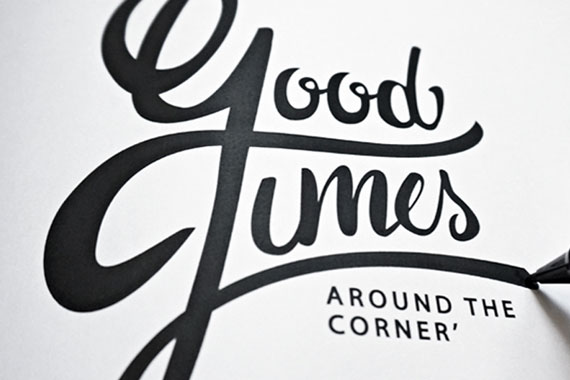 Good
Times
AROUND THE
CORNER'